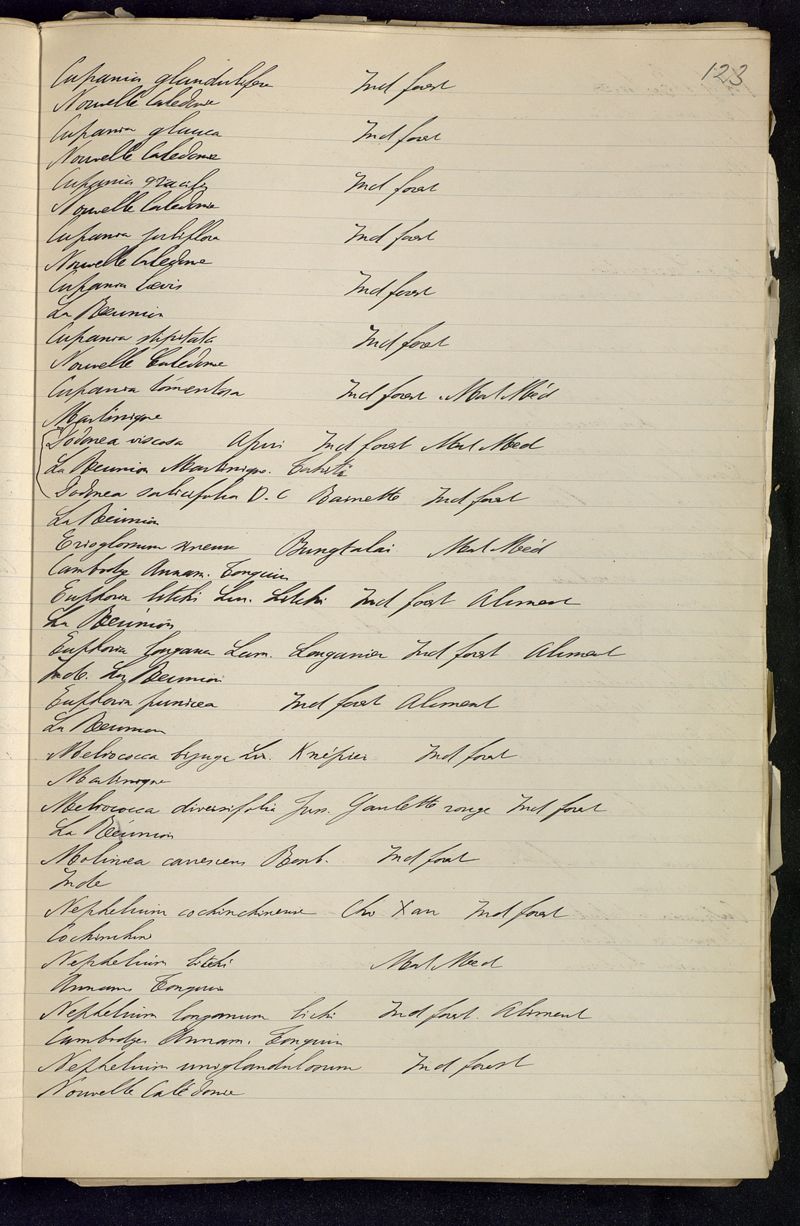 123
Cupania glandulifera Ind forest
Nouvelle Caledonie
Cupania glauca Ind forest
Nouvelle Caledonie
Cupania gracilis Ind forest
Nouvelle Caledonie
Cupania Ind forest
Nouvelle Caledonie
Cupania laevis Ind forest
La Reunion
Cupania stipitata Ind forest
Nouvelle Caledonie
Cupania tomentosa Ind forest. Mat Méd
Martinique
Dodonea viscosa Apiri Ind forest Mat Med
La Reunion Martinique. Tahiti
Dodonea salicifolia D.C Ind forest
La Réunion
Erioglossum Bungtalai Mat Méd
Cambodge Annam. Tonquin
Euphoria litchi Lin. Litchi Ind forest Aliment
La Réunion
Euphoria longana Lam. Longanier Ind forest Aliment
Inde. La Reunion
Euphoria punicea Ind forest Aliment
La Reunion
Melicocca bijuga Lin. Knépier Ind forest
Martinique
Melicocca diversifolia Juss. Gaulette rouge Ind forest
La Réunion
Molinaea canescens Roxb. Ind forest
Inde
Nephelium cochinchinense Cho Xan Ind forest
Cochinchine
Nephelium litchi Mat Med
Annam Tonquin
Nephelium longanum lichi Ind forest. Aliment
Cambodge Annam. Tonquin
Nephelium uniglandulosum Ind forest
Nouvelle Calédonie